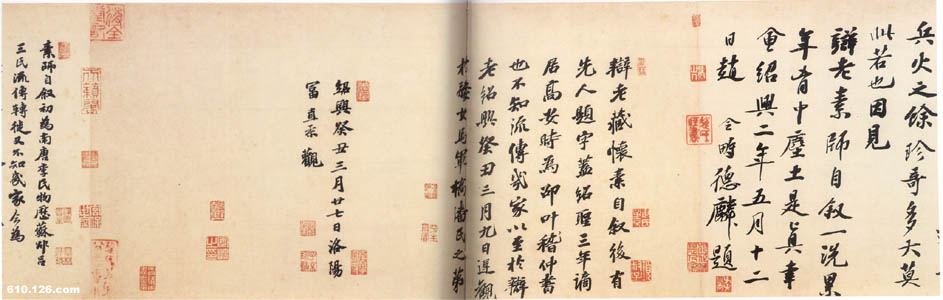 兵火之餘珍奇多矣莫
此若也因見
辯老素師自叙一洗累
年胷中塵土是真幸
會紹興二年五月十二
日趙令畤德麟題
辯老藏懷素自叙後有
先人題字蓋紹聖三年謫
居高安時為邵叶稽仲書
也不知流傳幾家以至於辯
老紹興癸丑三月九日遲觀
於婺女馬軍橋潘氏之第
紹興癸丑三月廿七日洛陽
富直柔觀
素師自叙初為南唐李氏物歷蘇邵吕
三氏流傳轉徙又不知幾家今為
610.126.com